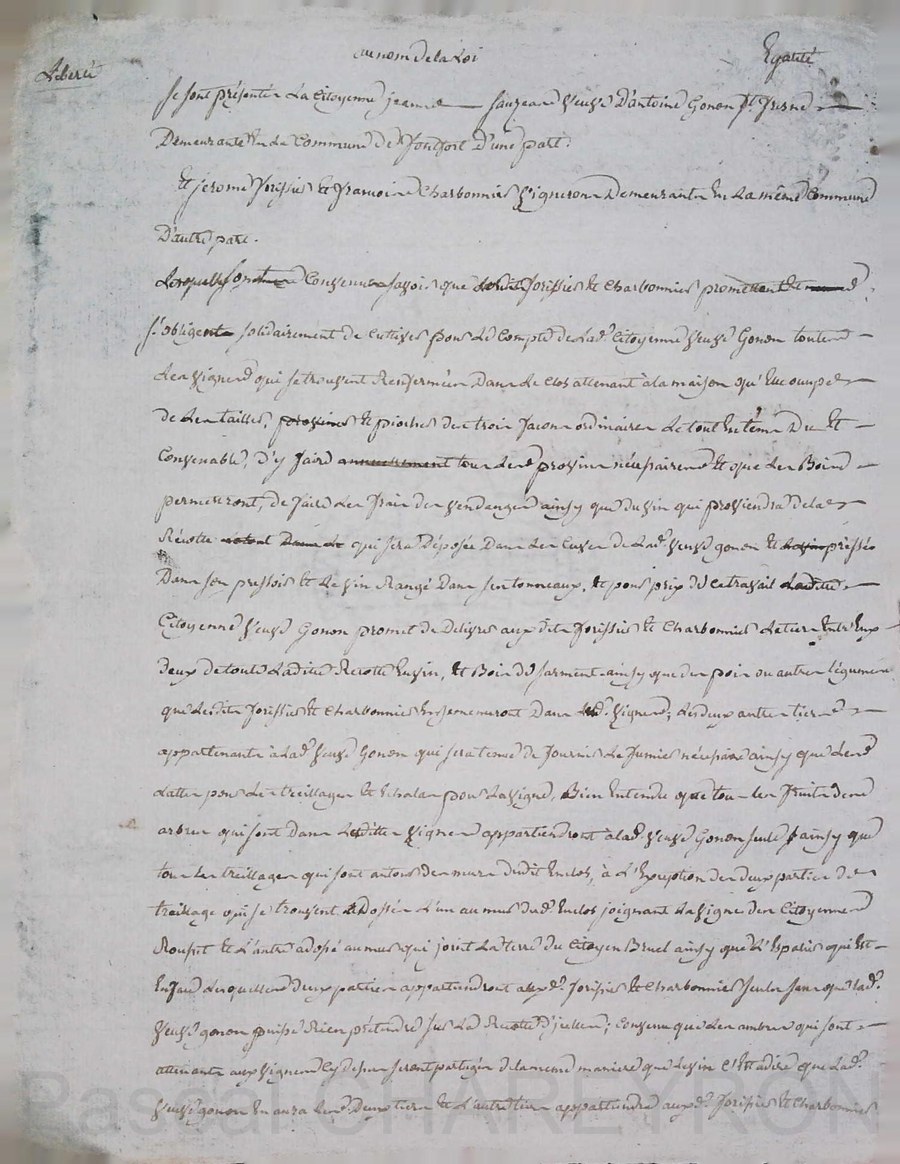 au nom de la Loi
Liberté Egalité
Se sont présentés La Citoyenne jeanne Sauzeare veuve D'antoine Gonon
Demeurante En La Commune de fontfort D'une part.
Et jerome forissier Et francois Charbonnier Vigneron Demeurants En La même Commune
D'autre part.
Convenus savoir que forissier Et Charbonnier promettent Et
s'obligent solidairement de Cultiver pour Le Compte de Lad. Citoyenne veuve Gonon toutes
Les vignes qui se trouvent Renfermées Dans Le Clos attenant à la maison qu'Elle occupe
de Les tailler, Et piocher des trois facons ordinaires Le tout En tems Du Et
Convenable, D'y faire tous Les provins nécessaires Et que Les Bois
permettront, de faire Les frais des vendanges ainsy que du vin qui proviendra de la
Récolte qui sera Déposée Dans Les Cuves de Lad. veuve gonon Et pressée
Dans son pressoir Et Le vin Rangé Dans ses tonneaux, Et pour prix de Ce travail Ladite
Citoyenne veuve Gonon promet de Délivrer aux dits forissier Et Charbonnier Le tiers Entre Eux
deux de toute Ladite Récolte En vin, Et Bois de sarment ainsy que des pois ou autres légumes
que Lesdits forissier Et Charbonnier Ensemenceront Dans vignes; Les deux autres tiers
appartenants à Lad. veuve Gonon qui sera tenue de fournir Le fumier nécessaire ainsy que Les
Lattes pour Les treillages Et Echalas pour La vigne, Bien Entendu que tous Les fruits des
arbres qui sont Dans Lesdittes vignes appartiendront à lad. veuve Gonon seule ainsy que
tous Les treillages qui sont autour des murs dudit Enclos, à L'Exception des deux parties de
treillage qui se trouvent adossées L'un au mur dud. Enclos joignant La vigne des Citoyennes
Et L'autre adossé au mur qui joint La terre du Citoyen Bruel ainsy que L'Espalier qui Est
En face Lesquelles deux parties appartiendront aux d. forissier Et Charbonnier seuls sans que lad.
veuve gonon puisse Rien prétendre sur La Récolte D'icelles; Convenu que Les arbres qui sont
attenants aux vignes Cy dessus seront partagés de la meme maniere que Le vin C'Est à dire que Lad.
veuve gonon En aura Les Deux tiers Et L'autre tiers appartiendra aux d. forissier Et Charbonnier
Pascal CHAREYRON